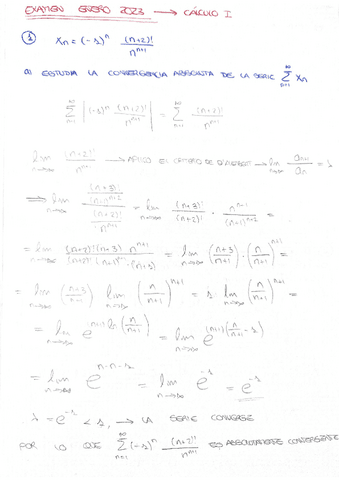 EXAMEN ENERO 2023 → CÁLCULO I
① Xn = (-1)^n (n+2)! / n^(n+1)
a) ESTUDIA LA CONVERGENCIA ABSOLUTA DE LA SERIE ∑_{n=1}^{∞} Xn
∑_{n=1}^{∞} |(-1)^n (n+2)! / n^(n+1)| = ∑_{n=1}^{∞} (n+2)! / n^(n+1)
lim_{n→∞} (n+2)! / n^(n+1) → APLICO EL CRITERIO DE D'ALEMBERT → lim_{n→∞} a_{n+1} / a_n = λ
⇒ lim_{n→∞} ((n+3)! / (n+1)^(n+2)) / ((n+2)! / n^(n+1)) = lim_{n→∞} (n+3)! / (n+2)! · n^(n+1) / (n+1)^(n+2) =
= lim_{n→∞} (n+2)! (n+3) n^(n+1) / (n+2)! (n+1)^(n+1) · (n+1) = lim_{n→∞} (n+3 / n+1) · (n / n+1)^(n+1) =
= lim_{n→∞} (n+3 / n+1) lim_{n→∞} (n / n+1)^(n+1) = 1 lim_{n→∞} (n / n+1)^(n+1) =
= lim_{n→∞} e^((n+1) ln(n / n+1)) = lim_{n→∞} e^((n+1)(n / n+1 - 1))
= lim_{n→∞} e^(n-n-1) = lim_{n→∞} e^(-1) = e^(-1)
λ = e^(-1) < 1 → LA SERIE CONVERGE
POR LO QUE ∑_{n=1}^{∞} (-1)^n (n+2)! / n^(n+1) ES ABSOLUTAMENTE CONVERGENTE